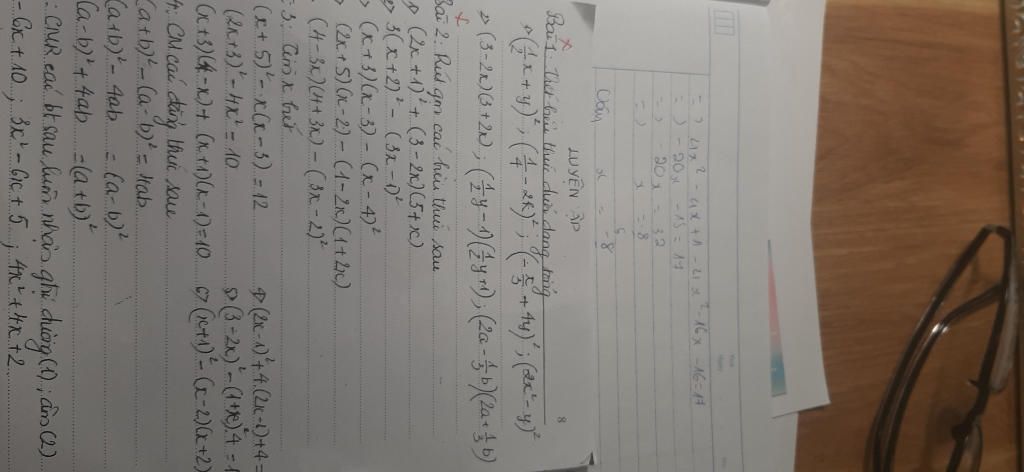 => 4x² - 4x + 1 - 4x² - 16x - 16 = 17
=> - 20x - 15 = 17
=> - 20x = 32
=> x = -8
Vậy x = -8
8
LUYỆN TẬP
Bài 1: Viết biểu thức dưới dạng tổng
(½x + y)² ; (1/4 - 2x)² ; (-x/3 + 4y)² ; (2x² - y)²
(3 - 2x)(3 + 2x) ; (½y - 1)(½y + 1) ; (2a - 1/3 b)(2a + 1/3 b)
Bài 2: Rút gọn các biểu thức sau
(2x + 1)² + (3 - 2x)(5 + x)
3(x + 2)² - (3x - 1)²
(x + 3)(x - 3) - (x - 4)²
(2x + 5)(x - 2) - (1 - 2x)(1 + 2x)
(4 - 3x)(4 + 3x) - (3x - 2)²
3: Tìm x biết
(x + 5)² - x(x - 3) = 12 4) (2x - 1)² + 4(2x - 1) + 4 =
(2x + 3)² - 4x² = 10 5) (3 - 2x)² - (1 + x)².4 = 1
(x + 3)(4 - x) + (x + 1)(x - 1) = 10 6) (x + 1)² - (x - 2)(x + 2)
4. CM các đẳng thức sau
(a + b)² - (a - b)² = 4ab
(a + b)² - 4ab = (a - b)²
(a - b)² + 4ab = (a + b)²
: CMR các bt sau luôn nhận gtrị dương (1) ; âm (2)
- 6x + 10 ; 3x² - 6x + 5 ; 4x² + 4x + 2